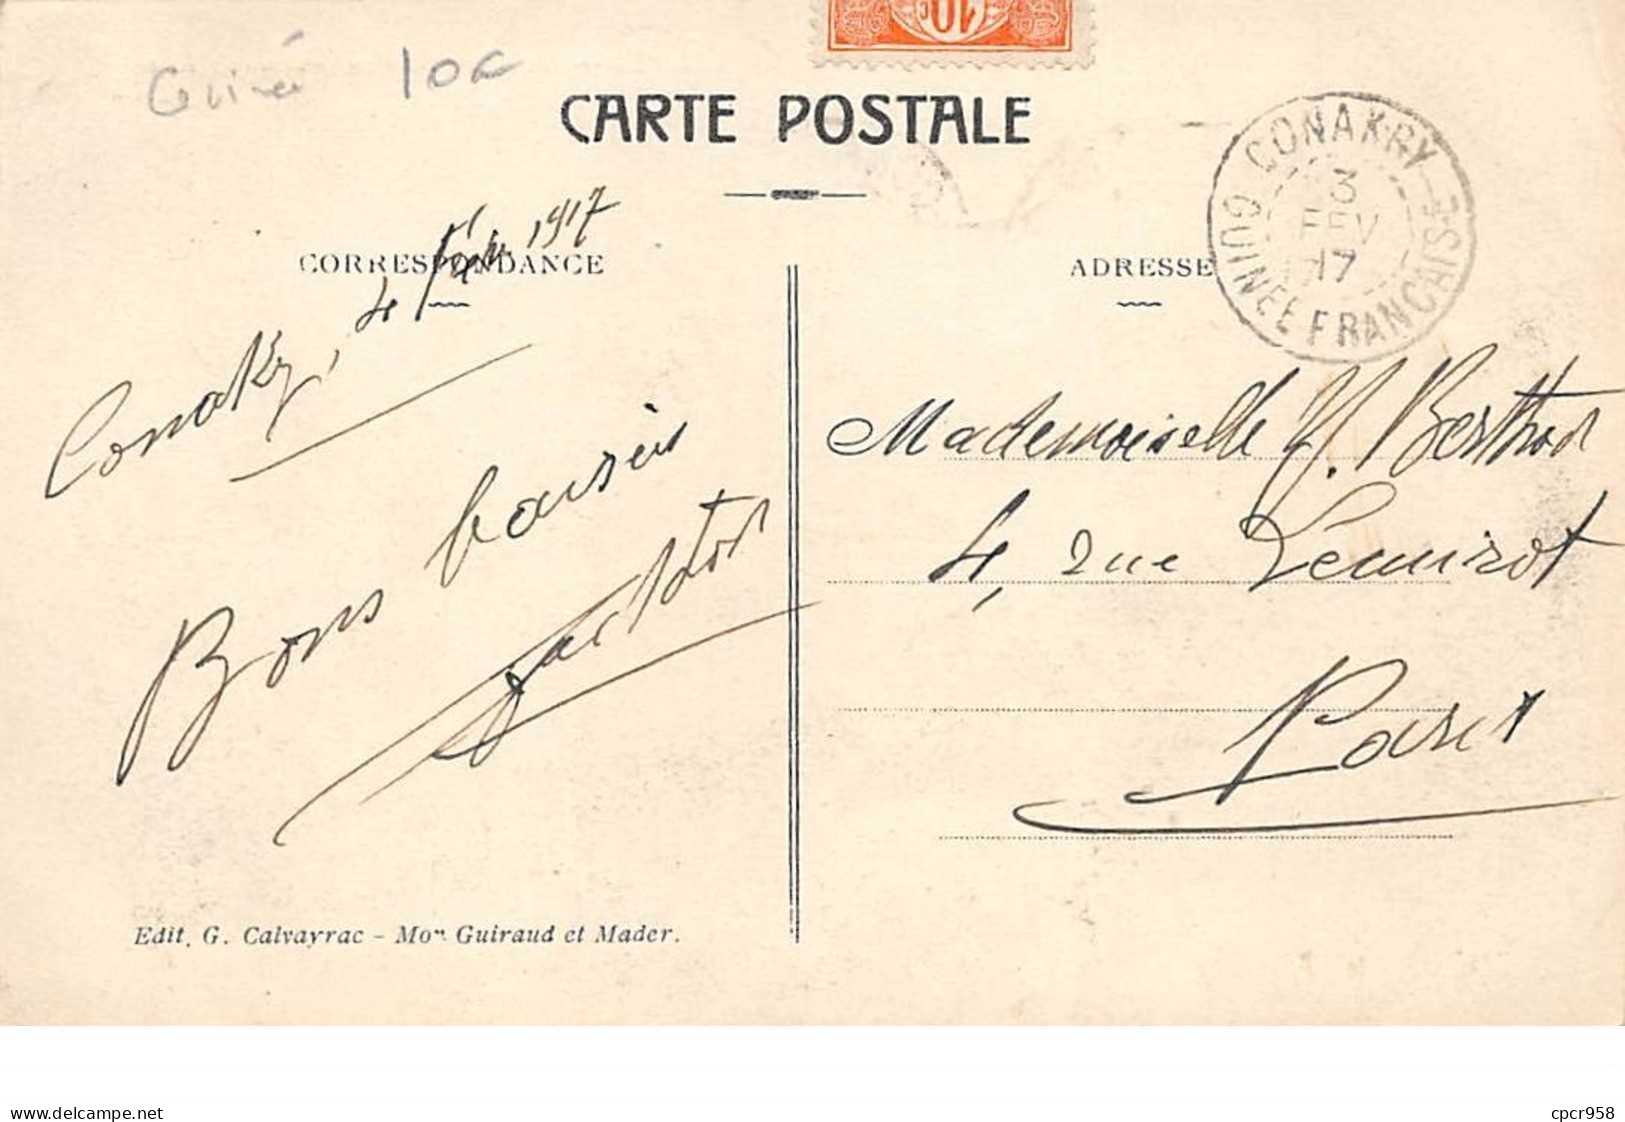 Guinée 10c
10c
CARTE POSTALE
CONAKRY
3
FEV
17
GUINÉE FRANÇAISE
CORRESPONDANCE
ADRESSE
Conakry, 4 1917
Bons baisers
Mademoiselle Y. Berthod
4, rue
Paris
Edit. G. Calvayrac - Mon Guiraud et Mader.
www.delcampe.net
cpcr958